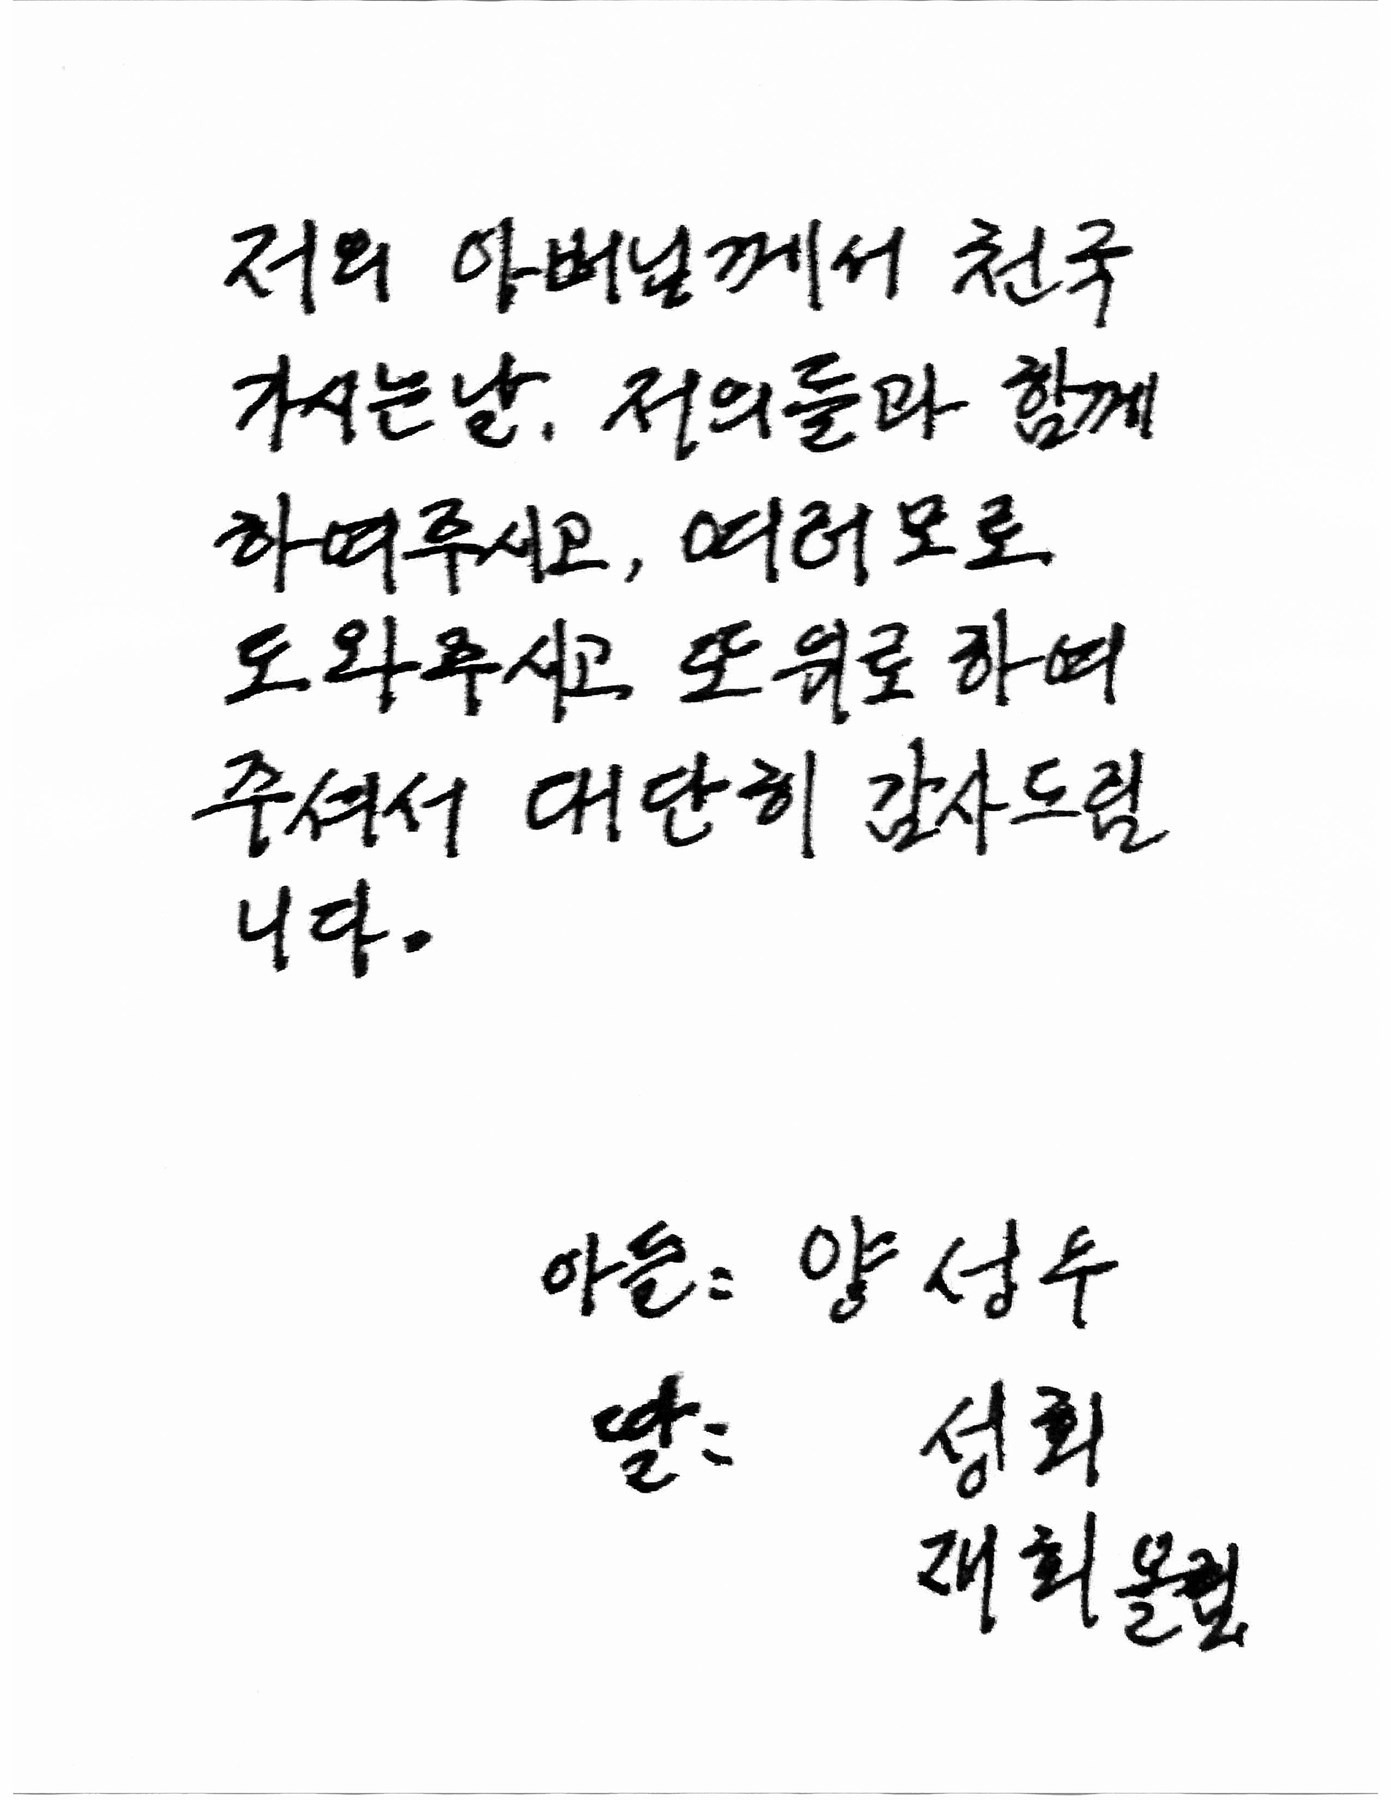 저의 아버님께서 천국
가시는날. 저의들과 함께
하여주시고, 여러모로
도와주시고 또 위로하여
주셔서 대단히 감사드립
니다.
아들: 양성두
딸: 성희
재희 올림